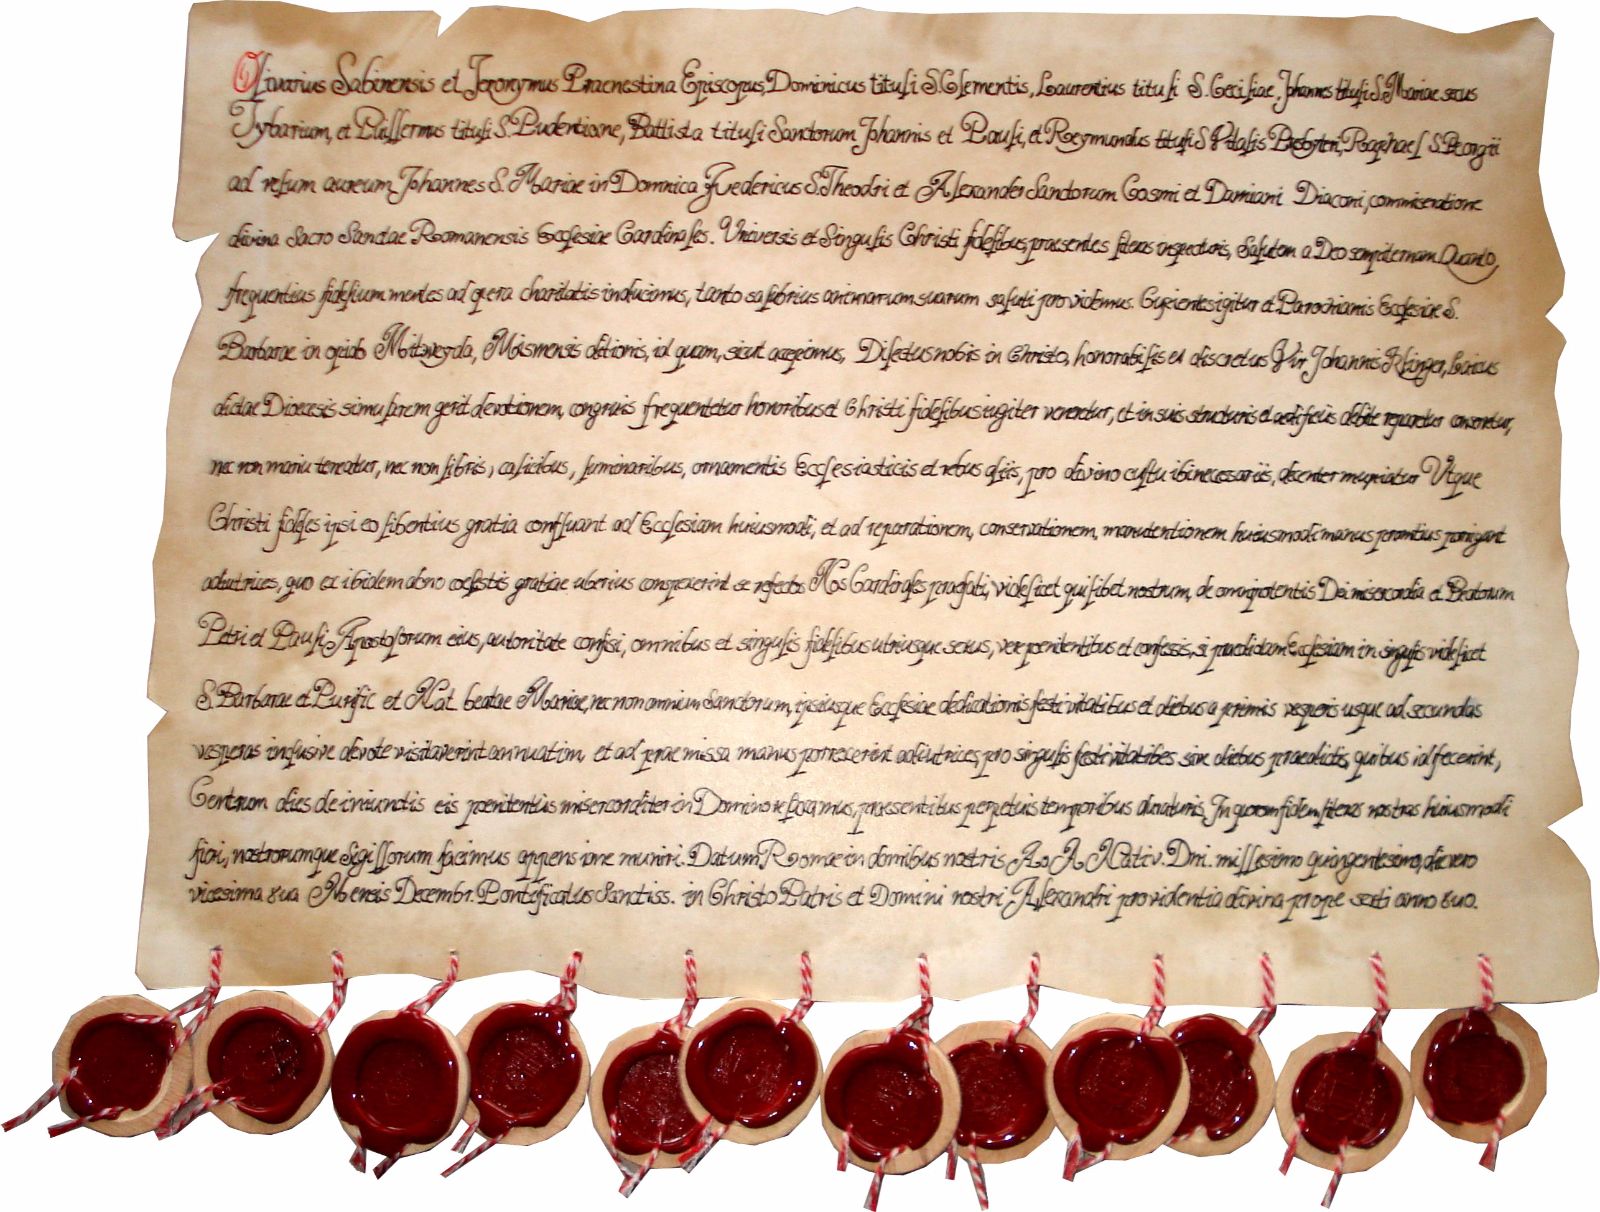 Olivarius Sabinensis et Jeronymus Praenestina Episcopus, Dominicus tituli S. Clementis, Laurentius tituli S. Ceciliae, Johannes tituli S. Mariae secus
Tybarium, et Pullermus tituli S. Pudentione, Battista tituli Sanctorum Johannis et Pauli, et Reymundus tituli S Vitalis Presbyteri, Raphael S. Georgii
ad refum aureum, Johannes S. Mariae in Domnica Fredericus S. Theodri et Alexander Sanctorum Cosmi et Damiani Diaconi, commiseratione
divina Sacro Sanctae Roomanensis Ecclesiae Cardinales. Universis et Singulis Christi fidelibus, praesentes literas inspecturis, Salutem a Deo sempiternam Quanto,
frequentius fidelium mentes ad opera charitatis inducimus, tanto salubrius animarum suarum saluti providemus. Cupientes igitur et Parochianis Ecclesiae S.
Barbarae in opido Mitweyda, Mismensis ditionis, id quam, sicut accepimus, Dilectus nobis in Christo, honorabilis et discretus Vir Johannis Klinger, laicus
dictae Dioecesis simularem gerit devotionem, congruis frequentetur honoribus et Christi fidelibus iugiter veneretur, et in suis structuris et aedificiis debite reparetur conservetur,
nec non manu teneatur, nec non libris, calicibus, luminaribus, ornamentis Ecclesiasticis et rebus aliis, pro divino cultu ibi necessariis, decenter muniatur Utque
Christi fideles ipsi eo libentius gratia confluant ad Ecclesiam huiusmodi, et ad reparationem, conservationem, manutentionem huiusmodi manus promtius porrigant
adiutrices, quo ex ibidem dono coelestis gratiae uberius conspexerint se refectos Nos Cardinales praefati, videlicet quilibet nostrum, de omnipotentis Dei misericordia et Beatorum
Petri et Pauli Apostolorum eius, autoritate confisi, omnibus et singulis fidelibus utriusque sexus, vere penitentibus et confessis, si praedictam Ecclesiam in singulis videlicet
S. Barbarae et Purific et Nat. beatae Mariae, nec non omnium Sanctorum, ipsiusque Ecclesiae dedicationis festivitatibus et diebus a primis vesperis usque ad secundas
vesperas inclusive devote visitaverint annuatim, et ad praemissa manus porrexerint adiutrices, pro singulis festivitatibes sive diebus praedictis, quibus id fecerint,
Centum dies de iniunctis eis poenitentiis misericorditer in Domino relaxamus, praesentibus perpetuis temporibus duraturis. In quorum fidem literas nostras huiusmodi
fieri, nostrorumque Sigillorum fecimus appensione muniri. Datum Romae in domibus nostris Ao. A Nativ. Dni. millesimo quingentesimo, die vero
vicesima sua Mensis Decembr. Pontificatus Sanctiss. in Christo Patris et Domini nostri, Alexandri providentia divina prope sexti anno suo.